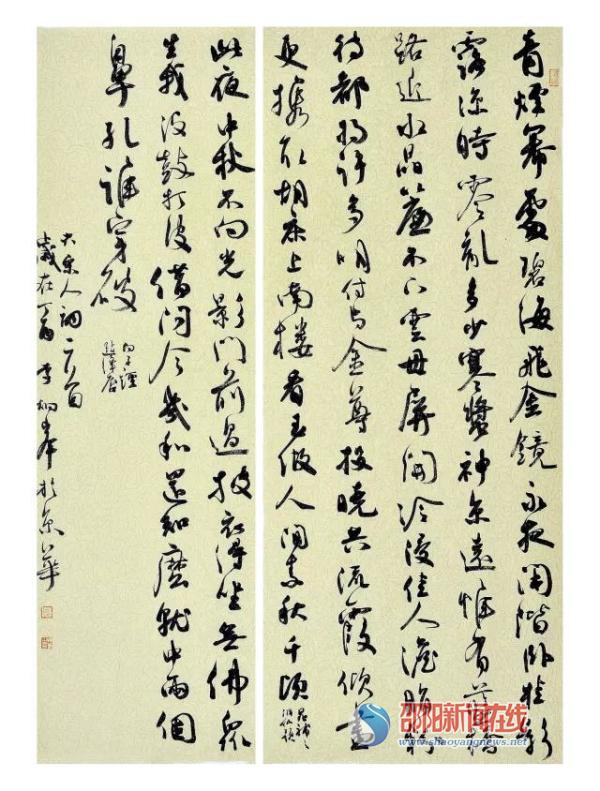 青煙冪處碧海飛金鏡永夜閒階卧桂影
露涼時零亂多少寒螀神京遠惟有藍橋
路近水晶簾不下雲母屏開冷浸佳人澹脂粉
待都將許多明付与金尊投曉共流霞傾盡
更攜取胡床上南樓看玉做人間素秋千頃
晁補之
此夜中秋不向光影門前過披衣得坐無佛眾
生我没鼓打皮借问今幾和還知麼就中兩個
鼻孔誰穿破
向子諲
點絳唇
宋人詞二首
歲在丁酉 於京華
邵阳新闻在线
www.shaoyangnews.net